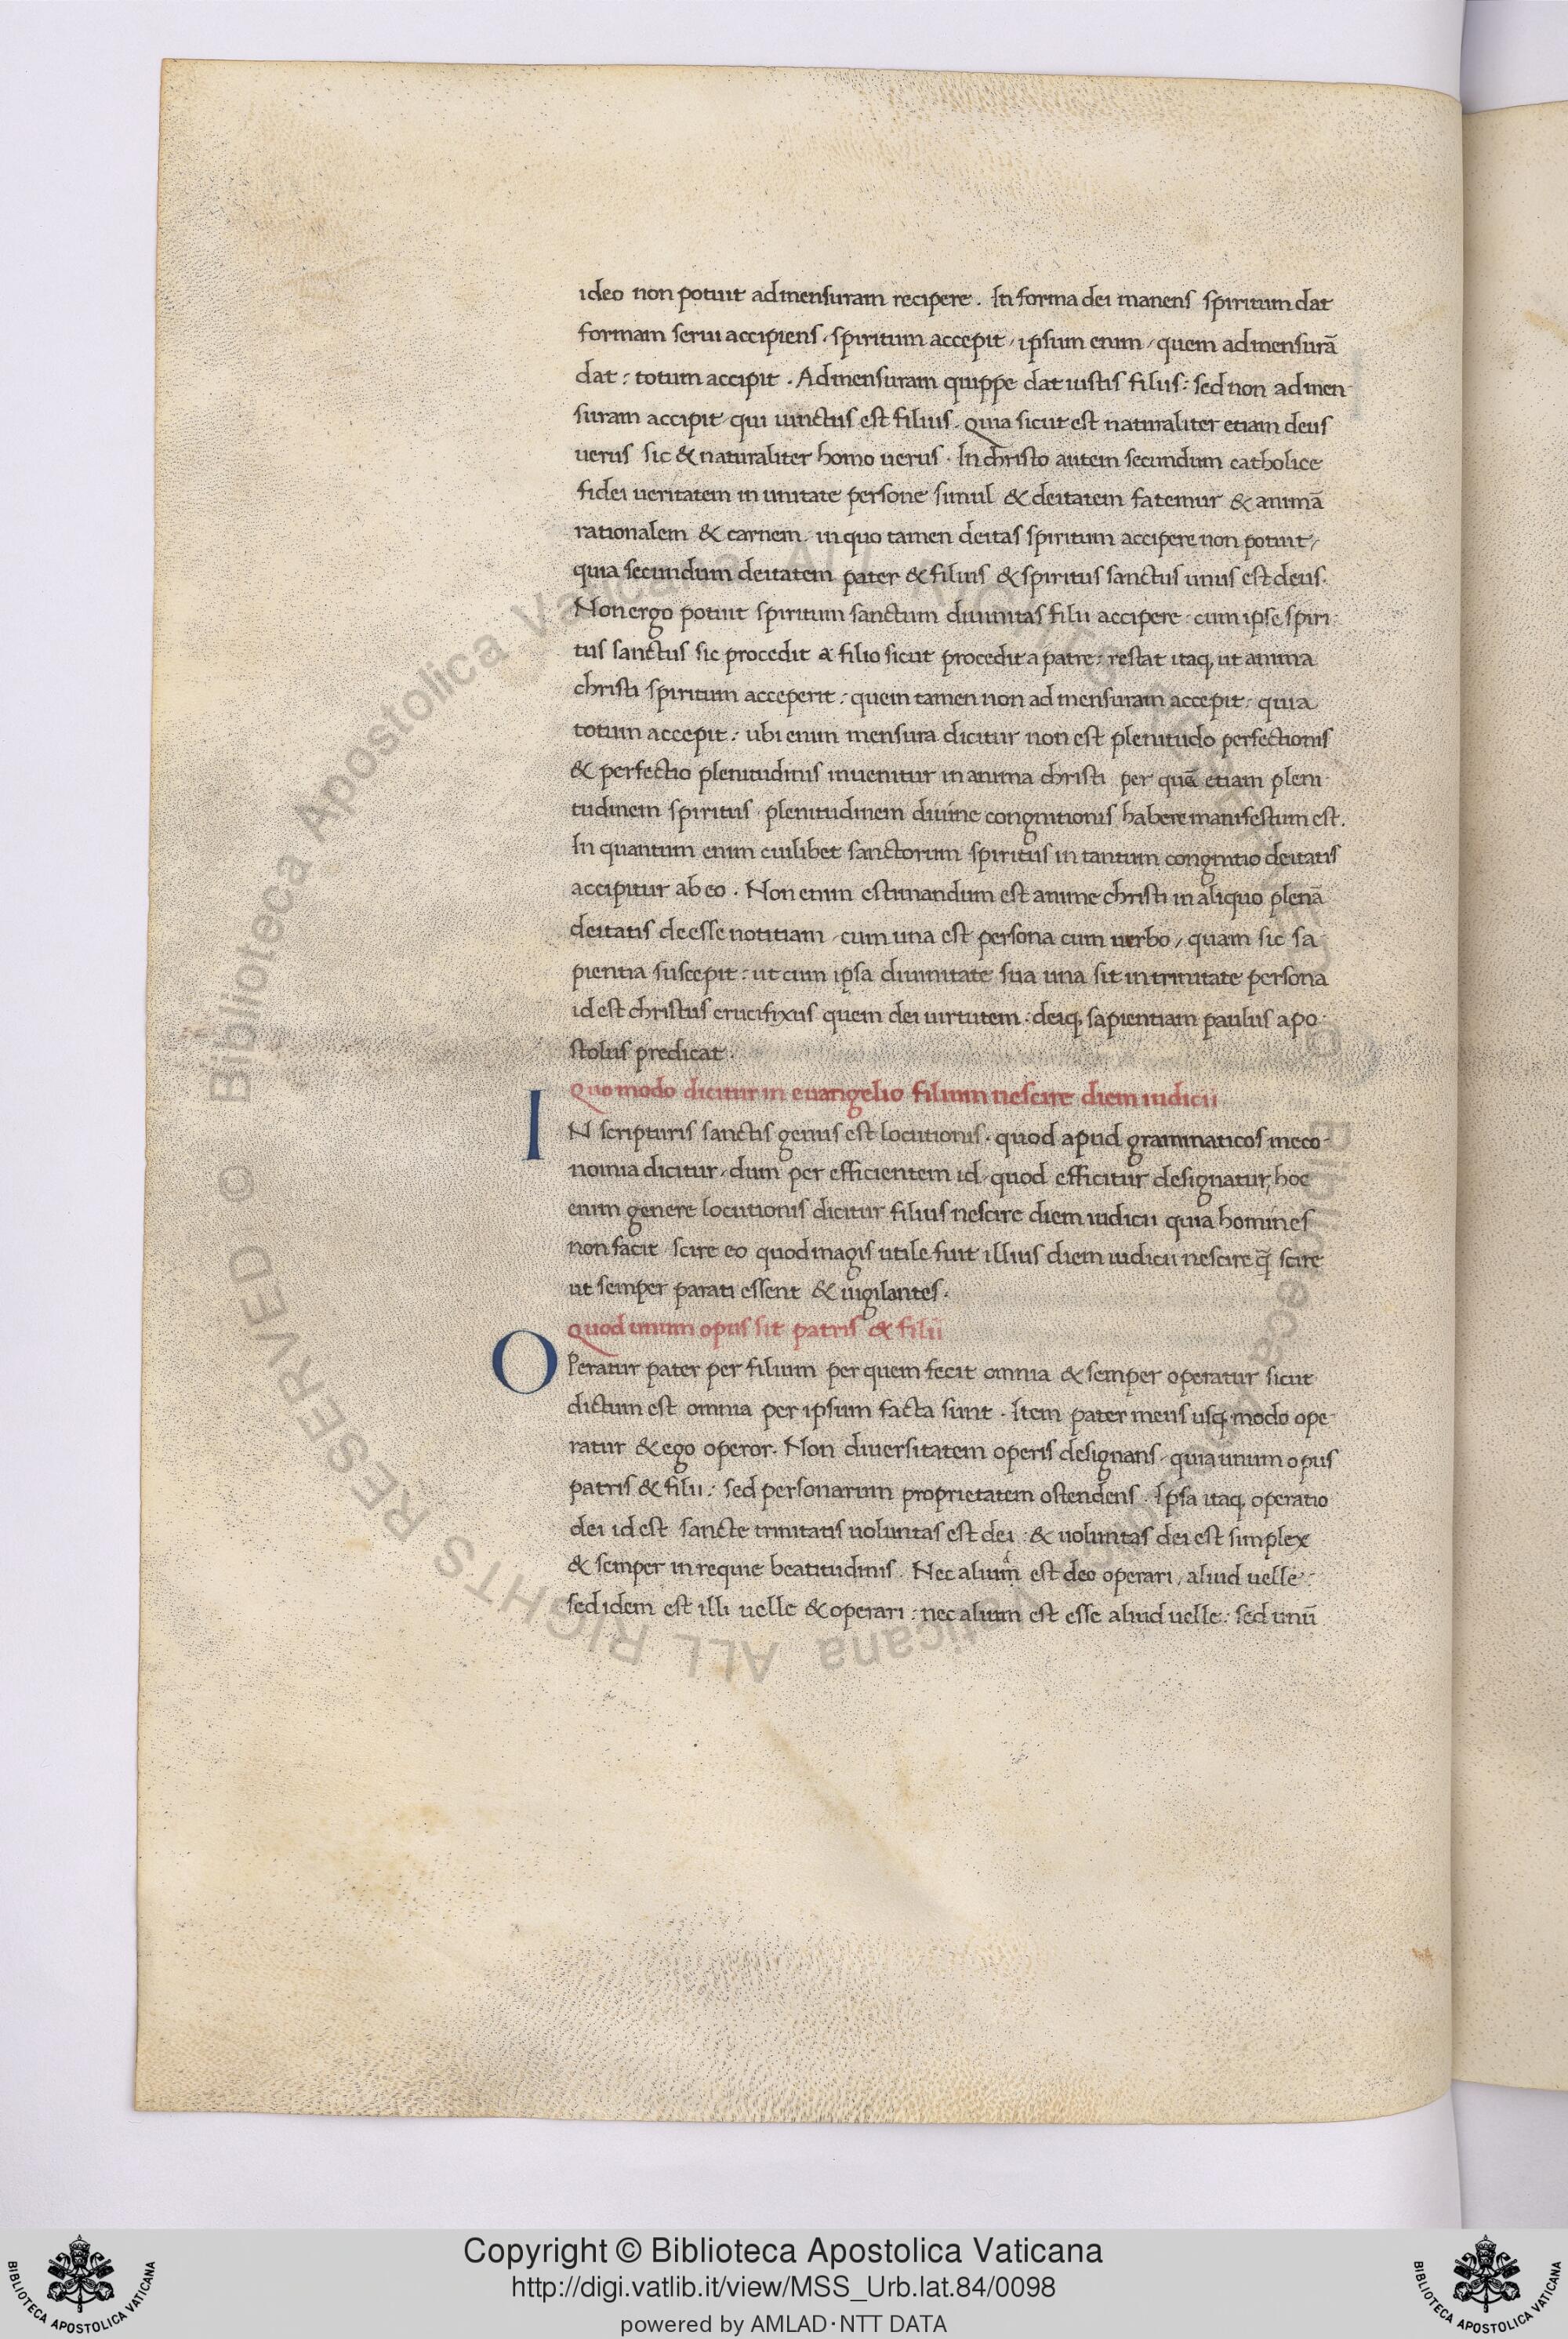 ideo non potuit admensuram recipere. In forma dei manens spiritum dat
formam serui accipiens. spiritum accepit, ipsum enim, quem admensurā
dat: totum accipit. Admensuram quippe dat iustis filius: sed non admen
suram accipit qui uinctus est filius. Quia sicut est naturaliter etiam deus
uerus sic & naturaliter homo uerus. In christo autem secundum catholice
fidei ueritatem in unitate persone simul & deitatem fatemur & animā
rationalem & carnem. in quo tamen deitas spiritum accipere non potuit,
quia secundum deitatem pater & filius & spiritus sanctus unus est deus.
Non ergo potuit spiritum sanctum diuinitas filii accipere. cum ipse spiri
tus sanctus sic procedit a filio sicut procedit a patre: restat itaq, ut anima
christi spiritum acceperit: quem tamen non ad mensuram accepit: quia
totum accepit: ubi enim mensura dicitur non est plenitudo perfectionis
& perfectio plenitudinis inuenitur in anima christi per quē etiam pleni
tudinem spiritus plenitudinem diuine congnitionis habere manifestum est.
In quantum enim cuilibet sanctorum spiritus in tantum congnitio deitatis
accipitur ab eo. Non enim estimandum est anime christi in aliquo plenā
deitatis deesse notitiam, cum una est persona cum uerbo, quam sic sa
pientia suscepit: ut cum ipsa diuinitate sua una sit in trinitate persona
id est christus crucifixus quem dei uirtutem: deiq, sapientiam paulus apo
stolus predicat.
Quomodo dicitur in euangelio filium nescire diem iudicii
IN scripturis sanctis genus est locutionis. quod apud grammaticos meco
nomia dicitur, dum per efficientem id, quod efficitur designatur, hoc
enim genere locutionis dicitur filius nescire diem iudicii quia homines
non facit scire eo quod magis utile fuit illius diem iudicii nescire q̄ scire
ut semper parati essent & uigilantes.
Quod unum opus sit patris & filii
OPeratur pater per filium per quem fecit omnia & semper operatur sicut
dictum est omnia per ipsum facta sunt. Item pater meus usq, modo ope
ratur & ego operor. Non diuersitatem operis designans, quia unum opus
patris & filii: sed personarum proprietatem ostendens. Ipsa itaq, operatio
dei id est sancte trinitatis uoluntas est dei: & uoluntas dei est simplex
& semper in requie beatitudinis. Nec est deo operari, aliud uelle:
sed idem est illi uelle & operari: nec alium est esse aliud uelle: sed unū
Biblioteca Apostolica Vaticana ALL RIGHTS RESERVED ©
Copyright © Biblioteca Apostolica Vaticana
http://digi.vatlib.it/view/MSS_Urb.lat.84/0098
powered by AMLAD·NTT DATA
BIBLIOTECA APOSTOLICA VATICANA
BIBLIOTECA APOSTOLICA VATICANA